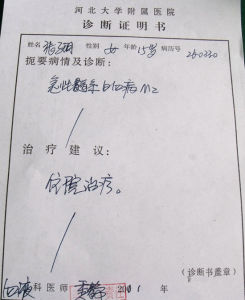 河北大学附属医院
诊断证明书
姓名 性别 女 年龄 15岁 病历号 250330
扼要病情及诊断：
急性髓系白血病M2
治疗建议：
住院治疗。
（诊断书盖章）
血液科医师 2011年